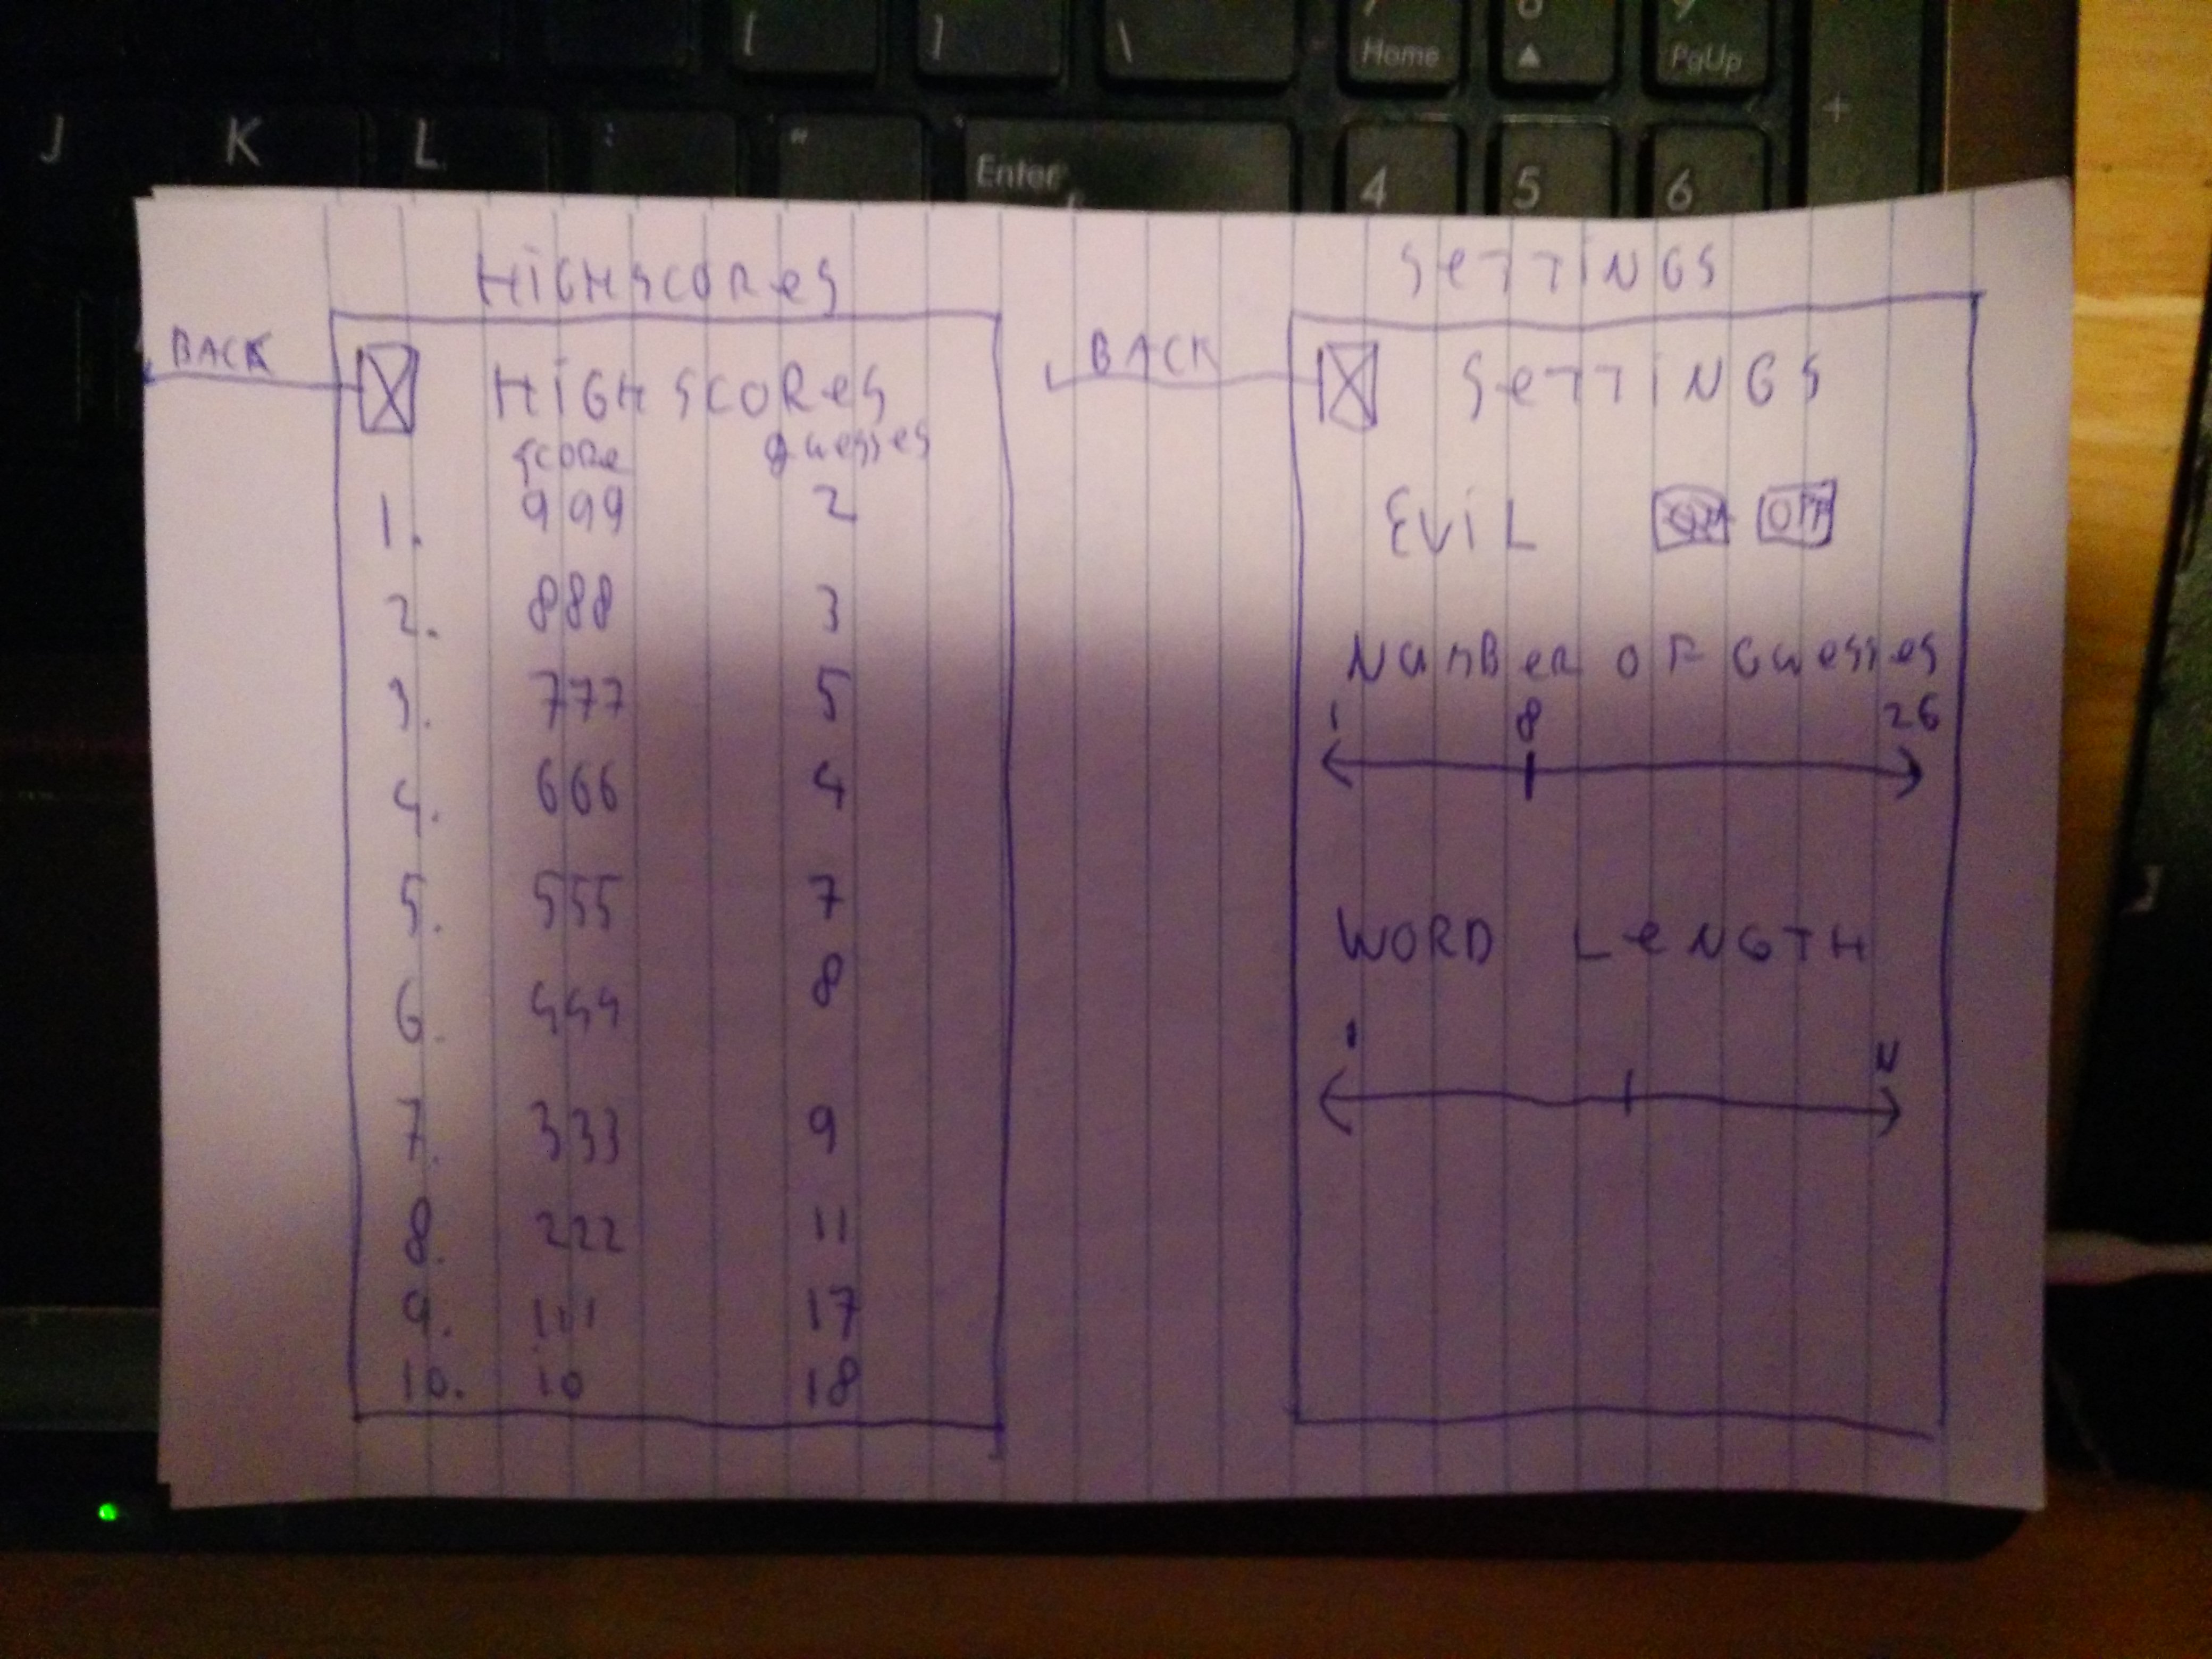 [ ] \ 7 Home 8 9 PgUp
J K L : " Enter 4 5 6 +
HIGHSCOReS
BACK
HIGHSCOReS
score guesses
1. 999 2
2. 888 3
3. 777 5
4. 666 4
5. 555 7
6. 444 8
7. 333 9
8. 222 11
9. 111 17
10. 10 18
SeTTiNGS
BACK
SeTTiNGS
EViL ON OFF
NumBeR OF Guesses
1 8 26
WORD LeNGTH
1 N